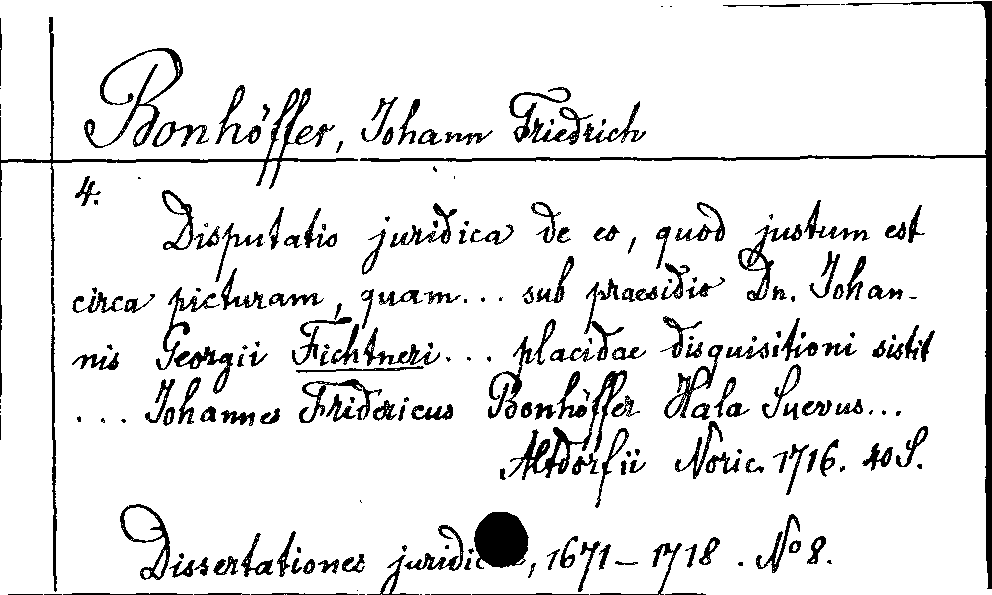 Bonhöffer, Johann Friedrich
4.
Disputatio juridica de eo, quod justum est
circa picturam, quam... sub praesidio Dn. Johan-
nis Georgii Fichtneri... placidae disquisitioni sistit
... Johannes Fridericus Bonhöffer Hala Suevus...
Altdorfii Noric. 1716. 40 S.
Dissertationes , 1671-1718. No 8.